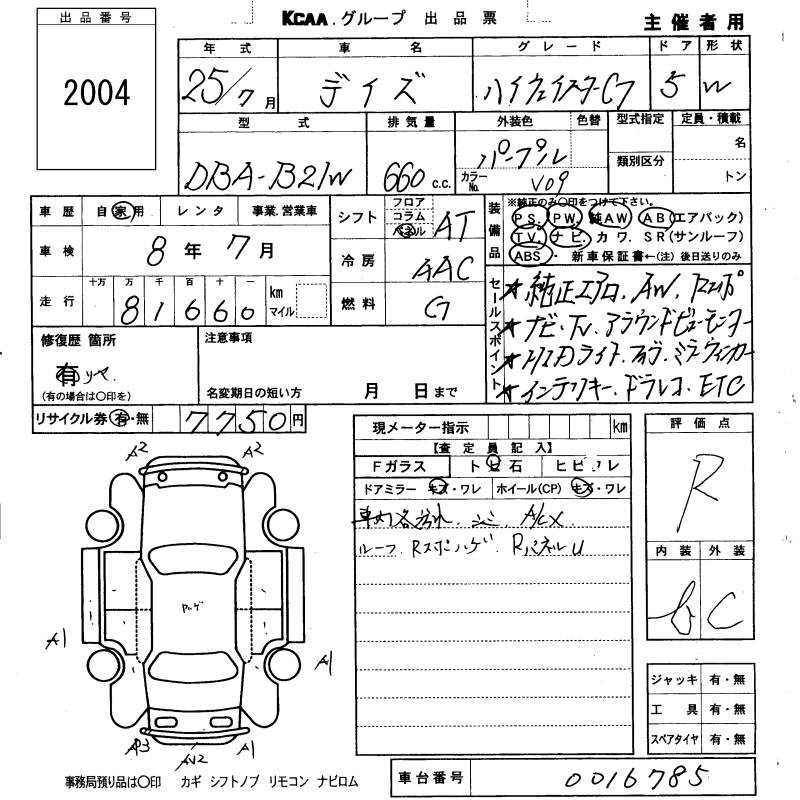 出品番号
KCAA.グループ 出品票
主催者用
2004
年式 車名 グレード ドア 形状
25/7月 デイズ ハイウェイスターG 5 W
型式 排気量 外装色 色替 型式指定 定員・積載
名
DBA-B21W 660 c.c. パープル
類別区分
カラーNo. V09 トン
車歴 自家用 レンタ 事業.営業車
シフト フロア コラム パネル AT
車検 8年7月
冷房 AAC
走行 十万 万 千 百 十 一 km マイル
81660
燃料 G
装備品 ※純正のみ○印をつけて下さい。
PS. PW. 純AW. AB(エアバック)
TV. ナビ. カワ. SR(サンルーフ)
ABS. 新車保証書←(注)後日送りのみ
セールスポイント
★純正エアロ、AW、Rスポ
★ナビ・TV、アラウンドビューモニター
★HIDライト.フォグ.ミラーウィンカー
★インテリキー、ドラレコ、ETC
修復歴 箇所
有
(有の場合は○印を)
注意事項
名変期日の短い方 月 日まで
リサイクル券 有・無 7750円
現メーター指示 km
【査定員記入】
Fガラス トビ石 ヒビワレ
ドアミラー キズ・ワレ ホイール(CP) キズ・ワレ
A/C×
ルーフ、Rスポハゲ、RパネルU
評価点
R
内装 外装
C
A2 A2
A1 A1
A1
ジャッキ 有・無
工具 有・無
スペアタイヤ 有・無
事務局預り品は○印 カギ シフトノブ リモコン ナビロム
車台番号 0016785